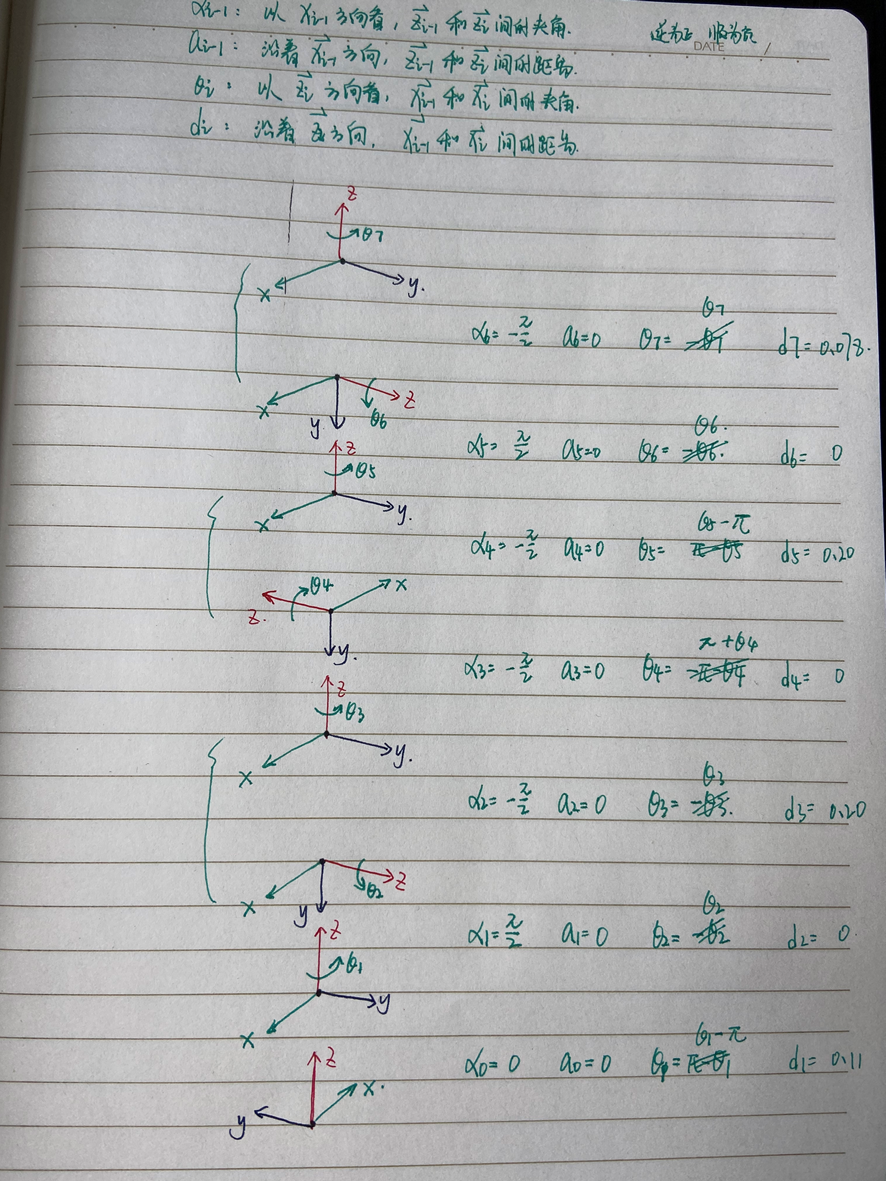 αi-1: 以 Xi-1 方向看, Zi-1 和 Zi 间的夹角. 逆为正 顺为负
DATE
ai-1: 沿着 Xi-1 方向, Zi-1 和 Zi 间的距离.
θi: 以 Zi 方向看, Xi-1 和 Xi 间的夹角.
di: 沿着 Zi 方向, Xi-1 和 Xi 间的距离.
z
θ7
x y.
θ7
α6=-π/2 a6=0 θ7= -θ7 d7=0.078.
x z
y θ6
θ6.
z
α5= π/2 a5=0 θ6= -θ6. d6= 0
θ5
x y.
θ5-π
α4=-π/2 a4=0 θ5= π-θ5 d5=0.20
θ4 x
z.
y.
π+θ4
α3=-π/2 a3=0 θ4= -π-θ4 d4= 0
z
θ3
x y.
θ3
α2=-π/2 a2=0 θ3= -θ3. d3= 0.20
z
θ2
x y
θ2
z
α1=π/2 a1=0 θ2= -θ2 d2= 0.
θ1
y
x
θ1-π
z
α0=0 a0=0 θ1= π-θ1 d1= 0.11
x.
y